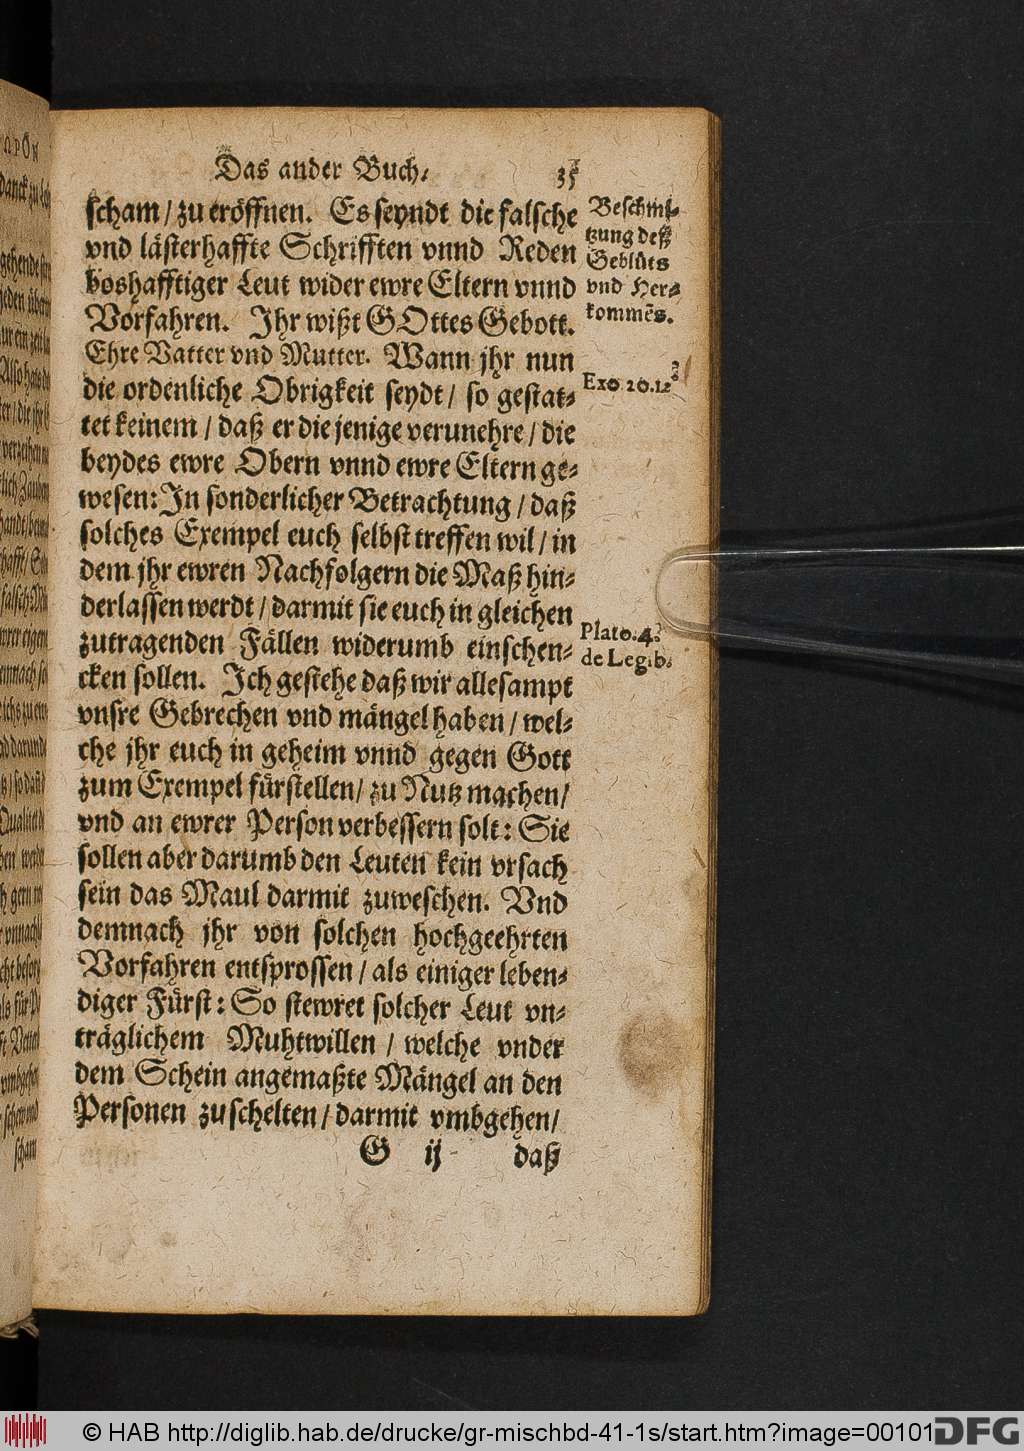 Das ander Buch. 35
scham / zu eröffnen. Es seyndt die falsche
vnd lästerhaffte Schrifften vnnd Reden
boshafftiger Leut wider ewre Eltern vnnd
Vorfahren. Ihr wißt GOttes Gebott.
Ehre Vatter vnd Mutter. Wann jhr nun
die ordenliche Obrigkeit seydt / so gestat-
tet keinem / daß er die jenige verunehre / die
beydes ewre Obern vnnd ewre Eltern ge-
wesen: In sonderlicher Betrachtung / daß
solches Exempel euch selbst treffen wil / in
dem jhr ewren Nachfolgern die Maß hin-
derlassen werdt / darmit sie euch in gleichen
zutragenden Fällen widerumb einschen-
cken sollen. Ich gestehe daß wir allesampt
vnsre Gebrechen vnd mängel haben / wel-
che jhr euch in geheim vnnd gegen Gott
zum Exempel fürstellen / zu Nutz machen /
vnd an ewrer Person verbessern solt: Sie
sollen aber darumb den Leuten kein vrsach
sein das Maul darmit zuweschen. Vnd
demnach jhr von solchen hochgeehrten
Vorfahren entsprossen / als einiger leben-
diger Fürst: So stewret solcher Leut vn-
träglichem Muhtwillen / welche vnder
dem Schein angemaßte Mängel an den
Personen zu schelten / darmit vmbgehen /
G ij daß
Beschmi-
tzung deß
Geblüts
vnd Her-
kommēs.
Exo. 20. 12
Plato. 4.
de Legib.
© HAB http://diglib.hab.de/drucke/gr-mischbd-41-1s/start.htm?image=00101
DFG